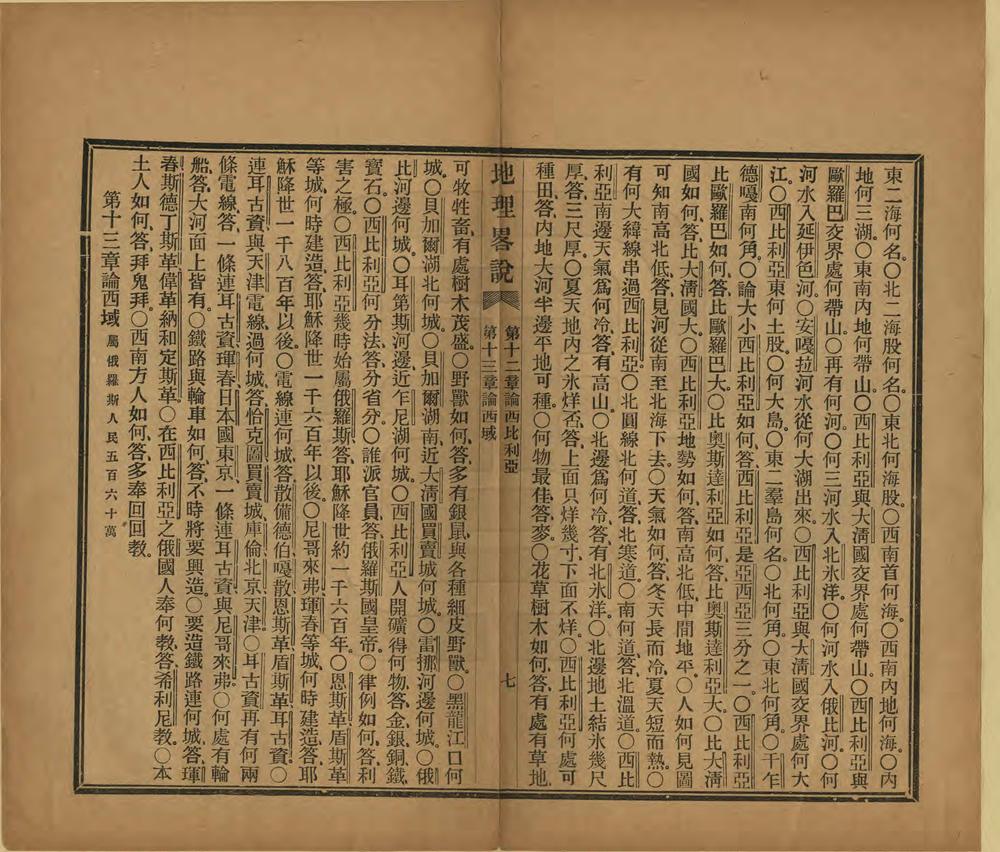 東二海何名。○北二海股何名。○東北何海股。○西南首何海。○西南內地何海。○內
地何三湖。○東南內地何帶山。○西比利亞與大淸國交界處何帶山。○西比利亞與
歐羅巴交界處何帶山。○再有何河。○何三河水入北氷洋。○何河水入俄比河。○何
河水入延伊色河。○安嘎拉河水從何大湖出來。○西比利亞與大淸國交界處何大
江。○西比利亞東何土股。○何大島。○東二羣島何名。○北何角。○東北何角。○干乍
德嘎南何角。○論大小西比利亞如何、答西比利亞是亞西亞三分之一。○西比利亞
比歐羅巴如何、答比歐羅巴大。○比奧斯達利亞如何、答比奧斯達利亞大。○比大淸
國如何、答比大淸國大。○西比利亞地勢如何、答南高北低中間地平。○人如何見圖
可知南高北低、答見河從南至北海下去。○天氣如何、答冬天長而冷、夏天短而熱。○
有何大緯線串過西比利亞。○北圓線北何道、答北寒道。○南何道、答北溫道。○西比
利亞南邊天氣爲何冷、答有高山。○北邊爲何冷、答有北氷洋。○北邊地土結氷幾尺
厚、答三尺厚。○夏天地內之氷烊否、答上面只烊幾寸、下面不烊。○西比利亞何處可
種田、答內地大河半邊平地可種。○何物最佳、答麥。○花草樹木如何、答有處有草地、
地理畧說
第十二章論西比利亞
第十三章論西域
七
可牧牲畜、有處樹木茂盛。○野獸如何、答多有銀鼠、與各種細皮野獸。○黑龍江口何
城。○貝加爾湖北何城。○貝加爾湖南、近大淸國買賣城何城。○雷挪河邊何城。○俄
比河邊何城。○耳第斯河邊、近乍尼湖何城。○西比利亞人開礦得何物、答金、銀、銅、鐵、
寶石。○西比利亞何分法、答分省分。○誰派官員、答俄羅斯國皇帝。○律例如何、答利
害之極。○西比利亞幾時始屬俄羅斯、答耶穌降世約一千六百年。○恩斯革盾斯革
等城何時建造、答耶穌降世一千六百年以後。○尼哥來弗、琿春等城何時建造、答耶
穌降世一千八百年以後。○電線連何城、答散備德伯嘎散恩斯革盾斯革耳古資。○
連耳古資與天津電線過何城、答恰克圖買賣城庫倫北京天津。○耳古資再有何兩
條電線、答一條連耳古資琿春日本國東京、一條連耳古資與尼哥來弗。○何處有輪
船、答大河面上皆有。○鐵路與輪車如何、答不時將要興造。○要造鐵路連何城、答琿
春斯德丁斯革偉革納和定斯革。○在西比利亞之俄國人奉何教、答希利尼教。○本
土人如何、答拜鬼拜。○西南方人如何、答多奉回回教。
第十三章論西域 屬俄羅斯人民五百六十萬